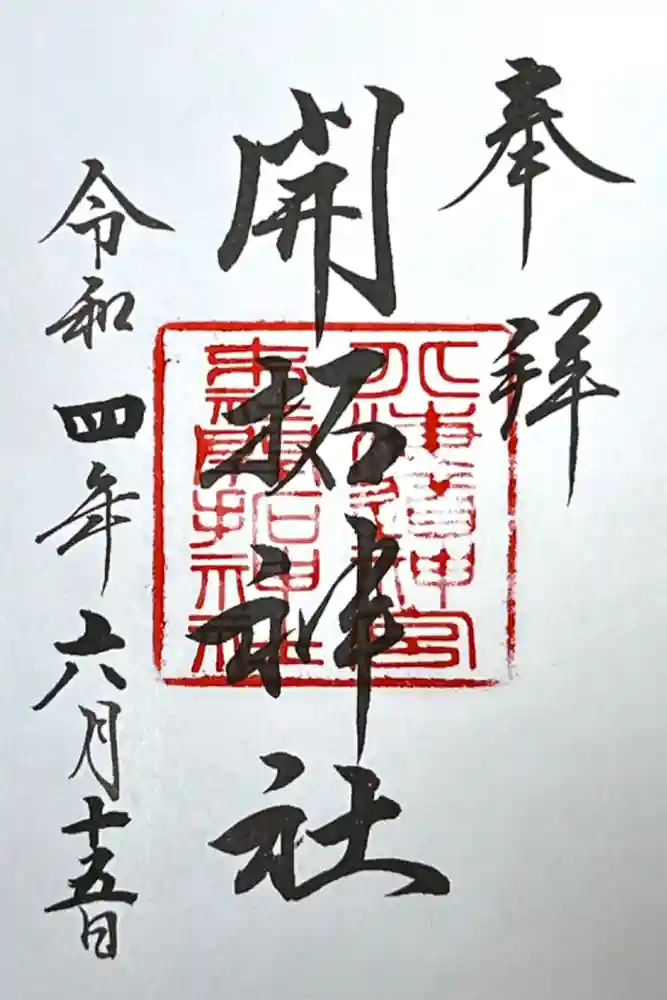 奉拝
開拓神社
北海道神宮
末社開拓神社
令和四年六月十五日